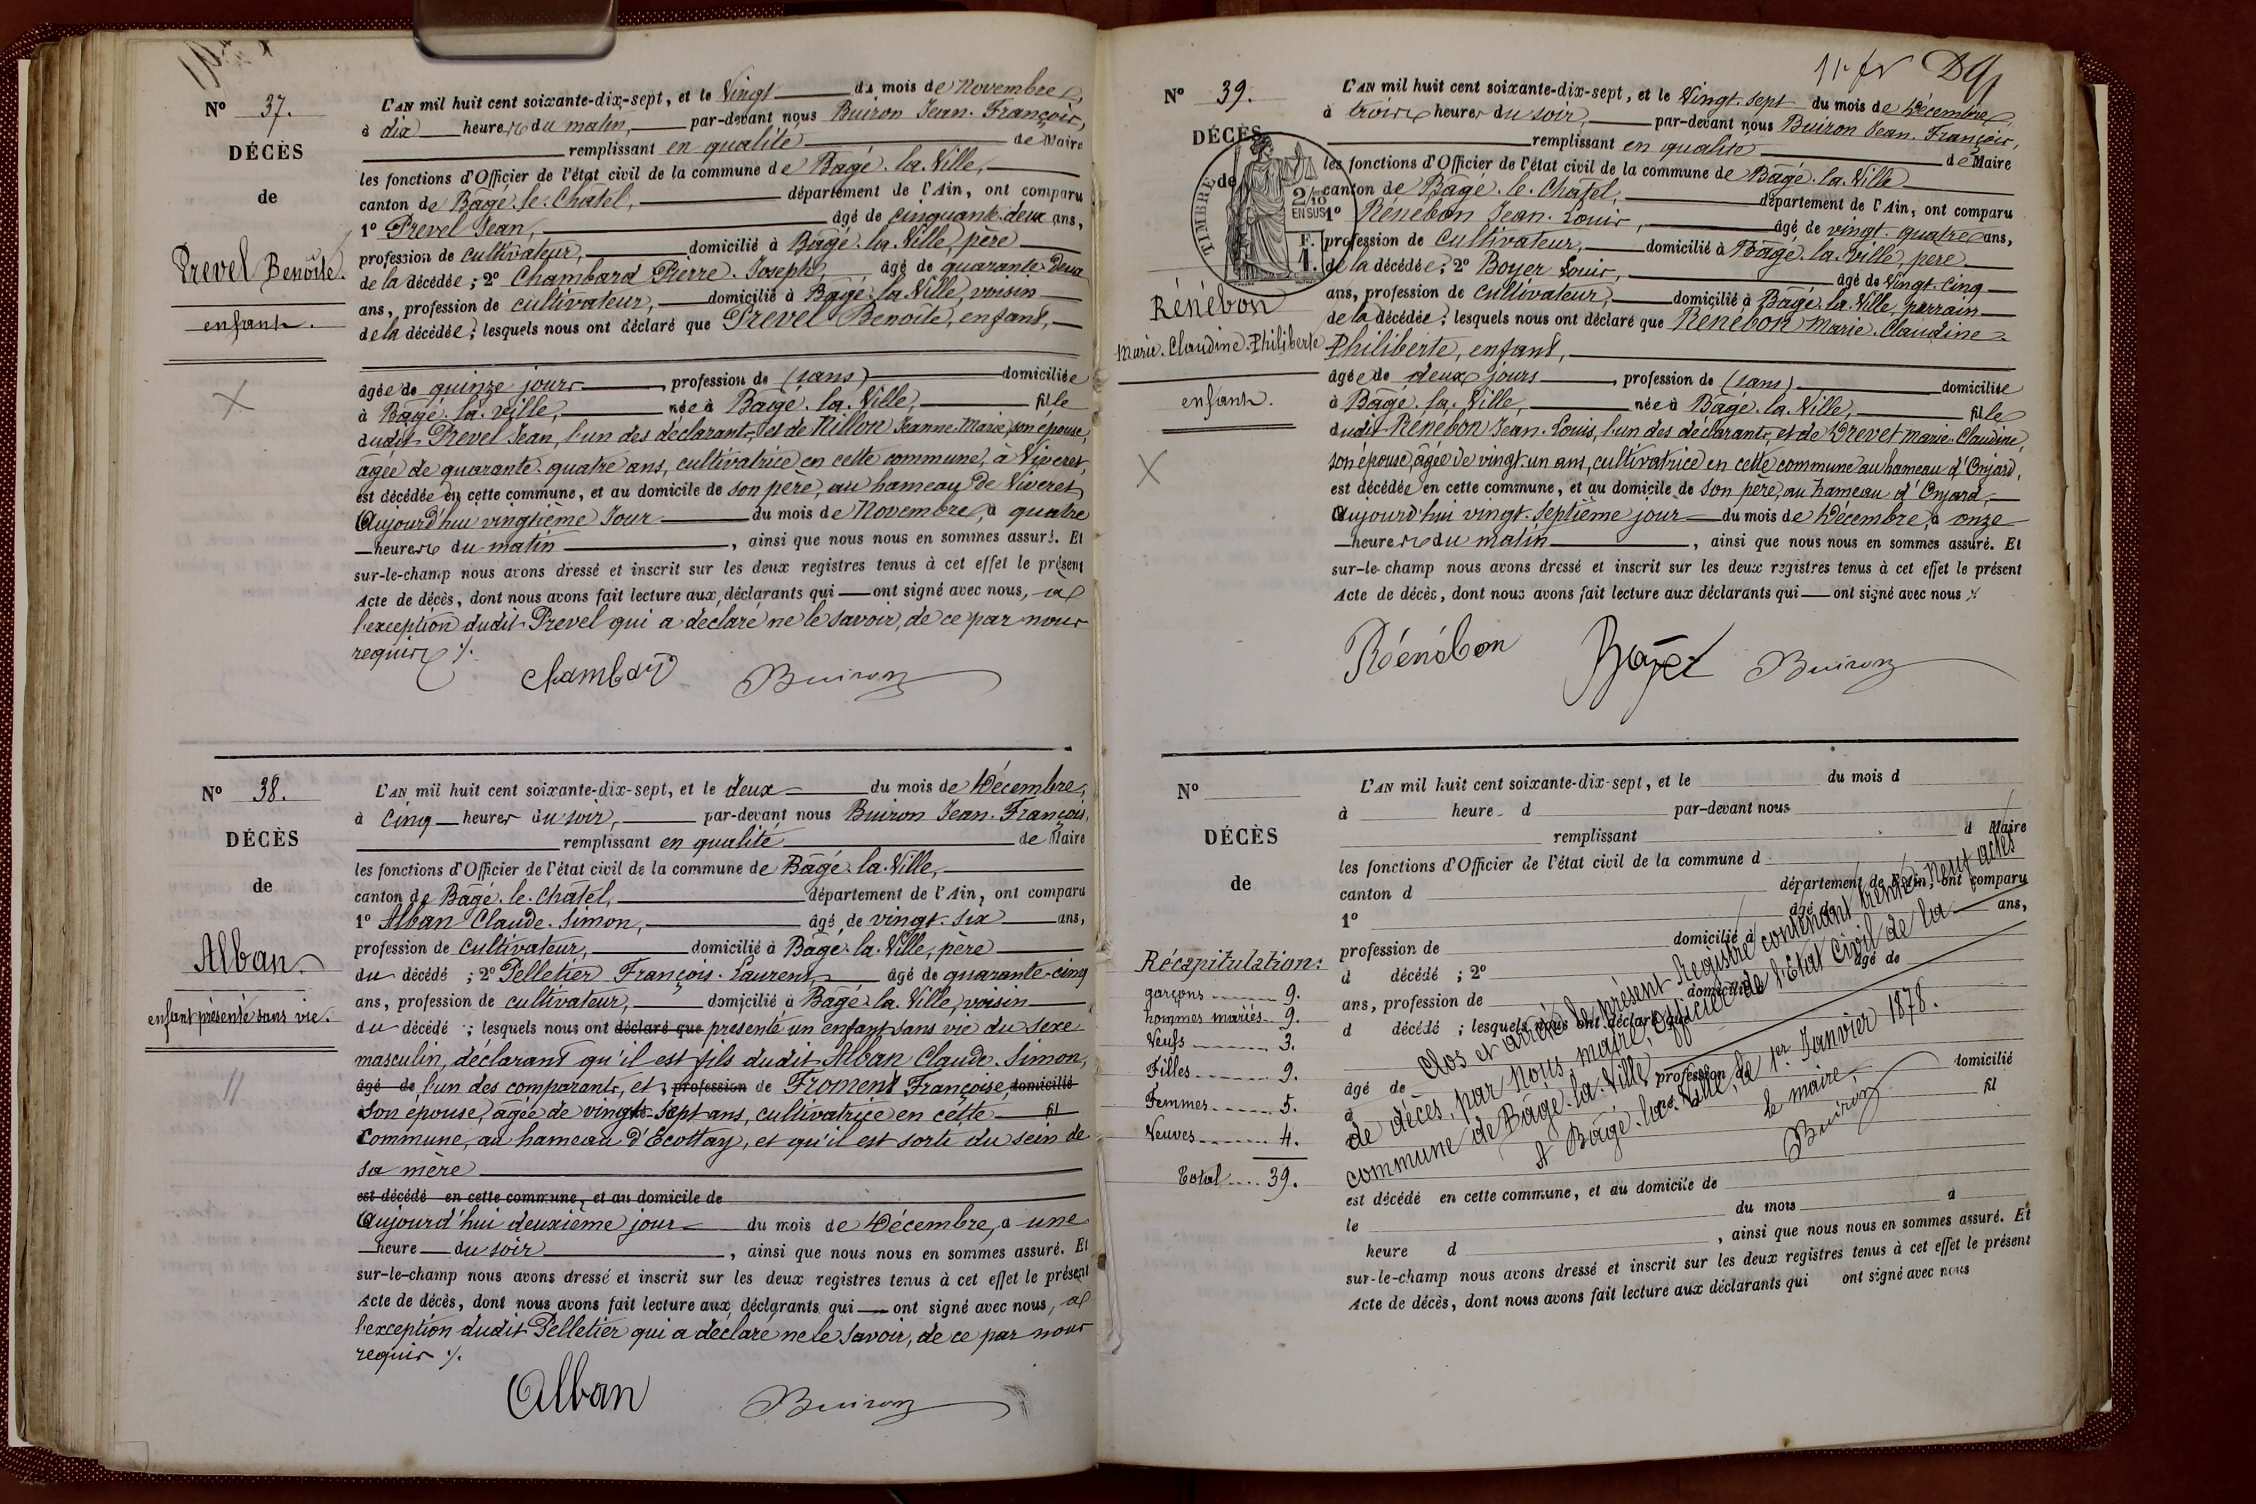 N° 37.
DÉCÈS
de
Prevel Benoîte.
enfant.
L'AN mil huit cent soixante-dix-sept, et le Vingt du mois de Novembre,
à dix heures du matin, par-devant nous Buiron Jean-François,
remplissant en qualité de Maire
les fonctions d'Officier de l'état civil de la commune de Bâgé-la-Ville,
canton de Bâgé-le-Châtel, département de l'Ain, ont comparu
1° Prevel Jean, âgé de cinquante-deux ans,
profession de cultivateur, domicilié à Bâgé-la-Ville, père
de la décédée ; 2° Chambard Pierre-Joseph, âgé de quarante-deux
ans, profession de cultivateur, domicilié à Bâgé-la-Ville, voisin
de la décédée ; lesquels nous ont déclaré que Prevel Benoîte, enfant,
âgée de quinze jours, profession de (sans) domiciliée
à Bâgé-la-Ville, née à Bâgé-la-Ville, fille
dudit Prevel Jean, l'un des déclarants, et de Nillon Jeanne-Marie, son épouse,
âgée de quarante-quatre ans, cultivatrice en cette commune, à Viveret,
est décédée en cette commune, et au domicile de son père, au hameau de Viveret
Aujourd'hui vingtième Jour du mois de Novembre, à quatre
heures du matin, ainsi que nous nous en sommes assuré. Et
sur-le-champ nous avons dressé et inscrit sur les deux registres tenus à cet effet le présent
Acte de décès, dont nous avons fait lecture aux déclarants qui ont signé avec nous, à
l'exception dudit Prevel qui a déclaré ne le savoir, de ce par nous
requis ./.
Chambard Buiron
N° 38.
DÉCÈS
de
Alban.
enfant présenté sans vie.
L'AN mil huit cent soixante-dix-sept, et le deux du mois de Décembre,
à Cinq heures du soir, par-devant nous Buiron Jean-François,
remplissant en qualité de Maire
les fonctions d'Officier de l'état civil de la commune de Bâgé-la-Ville,
canton de Bâgé-le-Châtel, département de l'Ain, ont comparu
1° Alban Claude-Simon, âgé de vingt-six ans,
profession de cultivateur, domicilié à Bâgé-la-Ville, père
du décédé ; 2° Pelletier François-Laurent, âgé de quarante-cinq
ans, profession de cultivateur, domicilié à Bâgé-la-Ville, voisin
du décédé ; lesquels nous ont déclaré que présenté un enfant sans vie du sexe
masculin, déclarant qu'il est fils dudit Alban Claude-Simon,
âgé de l'un des comparants, et , profession de Froment Françoise, domicilié
Son épouse, âgée de vingt-sept ans, cultivatrice en cette fil
commune, au hameau d'Ecottay, et qu'il est sorti du sein de
sa mère
est décédé en cette commune, et au domicile de
Aujourd'hui deuxième jour du mois de Décembre, à une
heure du soir, ainsi que nous nous en sommes assuré. Et
sur-le-champ nous avons dressé et inscrit sur les deux registres tenus à cet effet le présent
Acte de décès, dont nous avons fait lecture aux déclarants qui ont signé avec nous, à
l'exception dudit Pelletier qui a déclaré ne le savoir, de ce par nous
requis ./.
Alban Buiron
N° 39.
DÉCÈS
de
TIMBRE
2/10
EN SUS
F.
1.
Rénébon
Marie-Claudine-Philiberte
enfant.
L'AN mil huit cent soixante-dix-sept, et le Vingt-sept du mois de Décembre,
à trois heures du soir, par-devant nous Buiron Jean-François,
remplissant en qualité de Maire
les fonctions d'Officier de l'état civil de la commune de Bâgé-la-Ville
canton de Bâgé-le-Châtel, département de l'Ain, ont comparu
1° Rénébon Jean-Louis, âgé de vingt-quatre ans,
profession de Cultivateur, domicilié à Bâgé-la-Ville, père
de la décédée ; 2° Boyer Louis, âgé de Vingt-cinq
ans, profession de cultivateur, domicilié à Bâgé-la-Ville, parrain
de la décédée ; lesquels nous ont déclaré que Rénébon Marie-Claudine
Philiberte, enfant,
âgée de deux jours, profession de (sans) domiciliée
à Bâgé-la-Ville, née à Bâgé-la-Ville, fille
dudit Rénébon Jean-Louis, l'un des déclarants, et de Drevet Marie-Claudine,
son épouse, âgée de vingt-un ans, cultivatrice en cette commune au hameau d'Onjard,
est décédée en cette commune, et au domicile de son père, au hameau d'Onjard,
Aujourd'hui vingt-septième jour du mois de Décembre, à onze
heures du matin, ainsi que nous nous en sommes assuré. Et
sur-le-champ nous avons dressé et inscrit sur les deux registres tenus à cet effet le présent
Acte de décès, dont nous avons fait lecture aux déclarants qui ont signé avec nous ./.
Rénébon Boyer Buiron
N°
DÉCÈS
de
Récapitulation:
garçons 9.
hommes mariés 9.
Veufs 3.
Filles 9.
Femmes 5.
Veuves 4.
Total 39.
L'AN mil huit cent soixante-dix-sept, et le du mois d
à heure d par-devant nous
remplissant d Maire
les fonctions d'Officier de l'état civil de la commune d
canton d département de l'Ain, ont comparu
1° âgé de ans,
profession de domicilié à
d décédé ; 2° âgé de
ans, profession de domicilié à
d décédé ; lesquels nous ont déclaré que
âgé de profession de domicilié
à né à fil
Clos et arrêté le présent Registre contenant trente-neuf actes
de décès, par nous, maire, officier de l'Etat Civil de la
commune de Bâgé-la-Ville
A Bâgé-la-Ville, le 1er Janvier 1878.
le maire,
Buiron
est décédé en cette commune, et au domicile de
le du mois à
heure d , ainsi que nous nous en sommes assuré. Et
sur-le-champ nous avons dressé et inscrit sur les deux registres tenus à cet effet le présent
Acte de décès, dont nous avons fait lecture aux déclarants qui ont signé avec nous